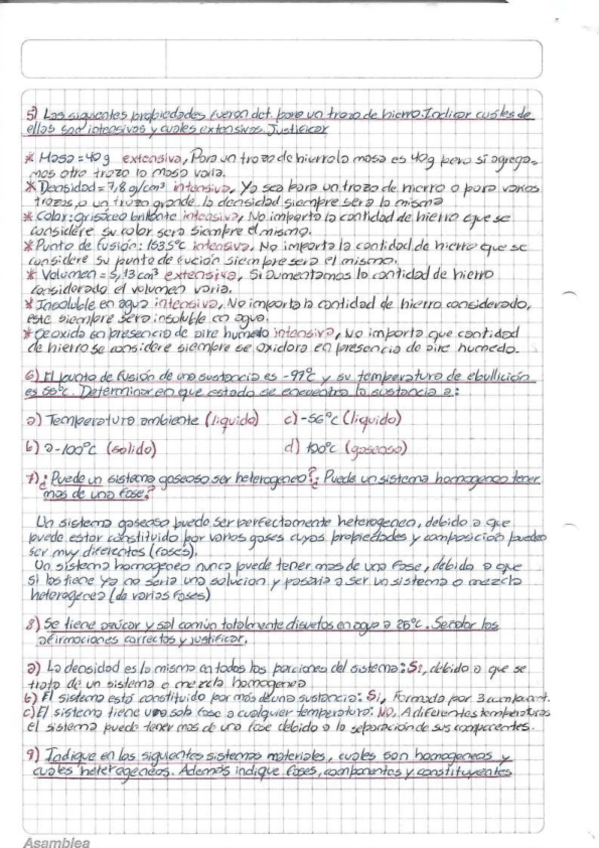 5) Las siguientes propiedades fueron det. para un trozo de hierro. Indicar cuáles de
ellas son intensivas y cuales extensivas. Justificar
* Masa = 40 g extensiva, Para un trozo de hierro la masa es 40g pero si agrega-
mos otro trozo la masa varia.
* Densidad = 7,8 g/cm³ intensiva, Ya sea para un trozo de hierro o para varios
trozos, o un trozo grande la densidad siempre sera la misma
* Color: grisáceo brillante intensiva, No importa la cantidad de hierro que se
considere su color sera siempre el mismo.
* Punto de fusión: 1535°C intensiva, No importa la cantidad de hierro que se
considere su punto de fución siempre sera el mismo.
* Volumen = 5,13 cm³ extensiva, Si aumentamos la cantidad de hierro
considerado el volumen varia.
* Insoluble en agua intensiva, No importa la cantidad de hierro considerado,
este siempre sera insoluble en agua.
* Se oxida en presencia de aire humedo intensiva, No importa que cantidad
de hierro se considere siempre se oxidara en presencia de aire humedo.
6) El punto de fusión de una sustancia es -97°C y su temperatura de ebullición
es 55°C. Determinar en que estado se encuentra la sustancia a:
a) Temperatura ambiente (liquido) c) -56°C (liquido)
b) a -100°C (solido) d) 100°C (gaseoso)
7) ¿Puede un sistema gaseoso ser heterogeneo? ¿Puede un sistema homogeneo tener
mas de una fase?
Un sistema gaseoso puede ser perfectamente heterogeneo, debido a que
puede estar constituido por varios gases cuyas propiedades y composición pueden
ser muy diferentes (fases).
Un sistema homogeneo nunca puede tener mas de una fase, debido a que
si las tiene ya no seria una solucion y pasaria a ser un sistema o mezcla
heterogenea (de varias fases)
8) Se tiene azúcar y sal común totalmente disueltos en agua a 25°C. Señalar las
afirmaciones correctas y justificar.
a) La densidad es la misma en todas las porciones del sistema: Si, debido a que se
trata de un sistema o mezcla homogenea
b) El sistema está constituido por más de una sustancia: Si, Formado por 3 component.
c) El sistema tiene una sola fase a cualquier temperatura: NO, A diferentes temperaturas
el sistema puede tener mas de una fase debido a la separación de sus componentes.
9) Indique en los siguientes sistemas materiales, cuales son homogeneos y
cuales heterogéneos. Además indique fases, componentes y constituyentes
Asamblea